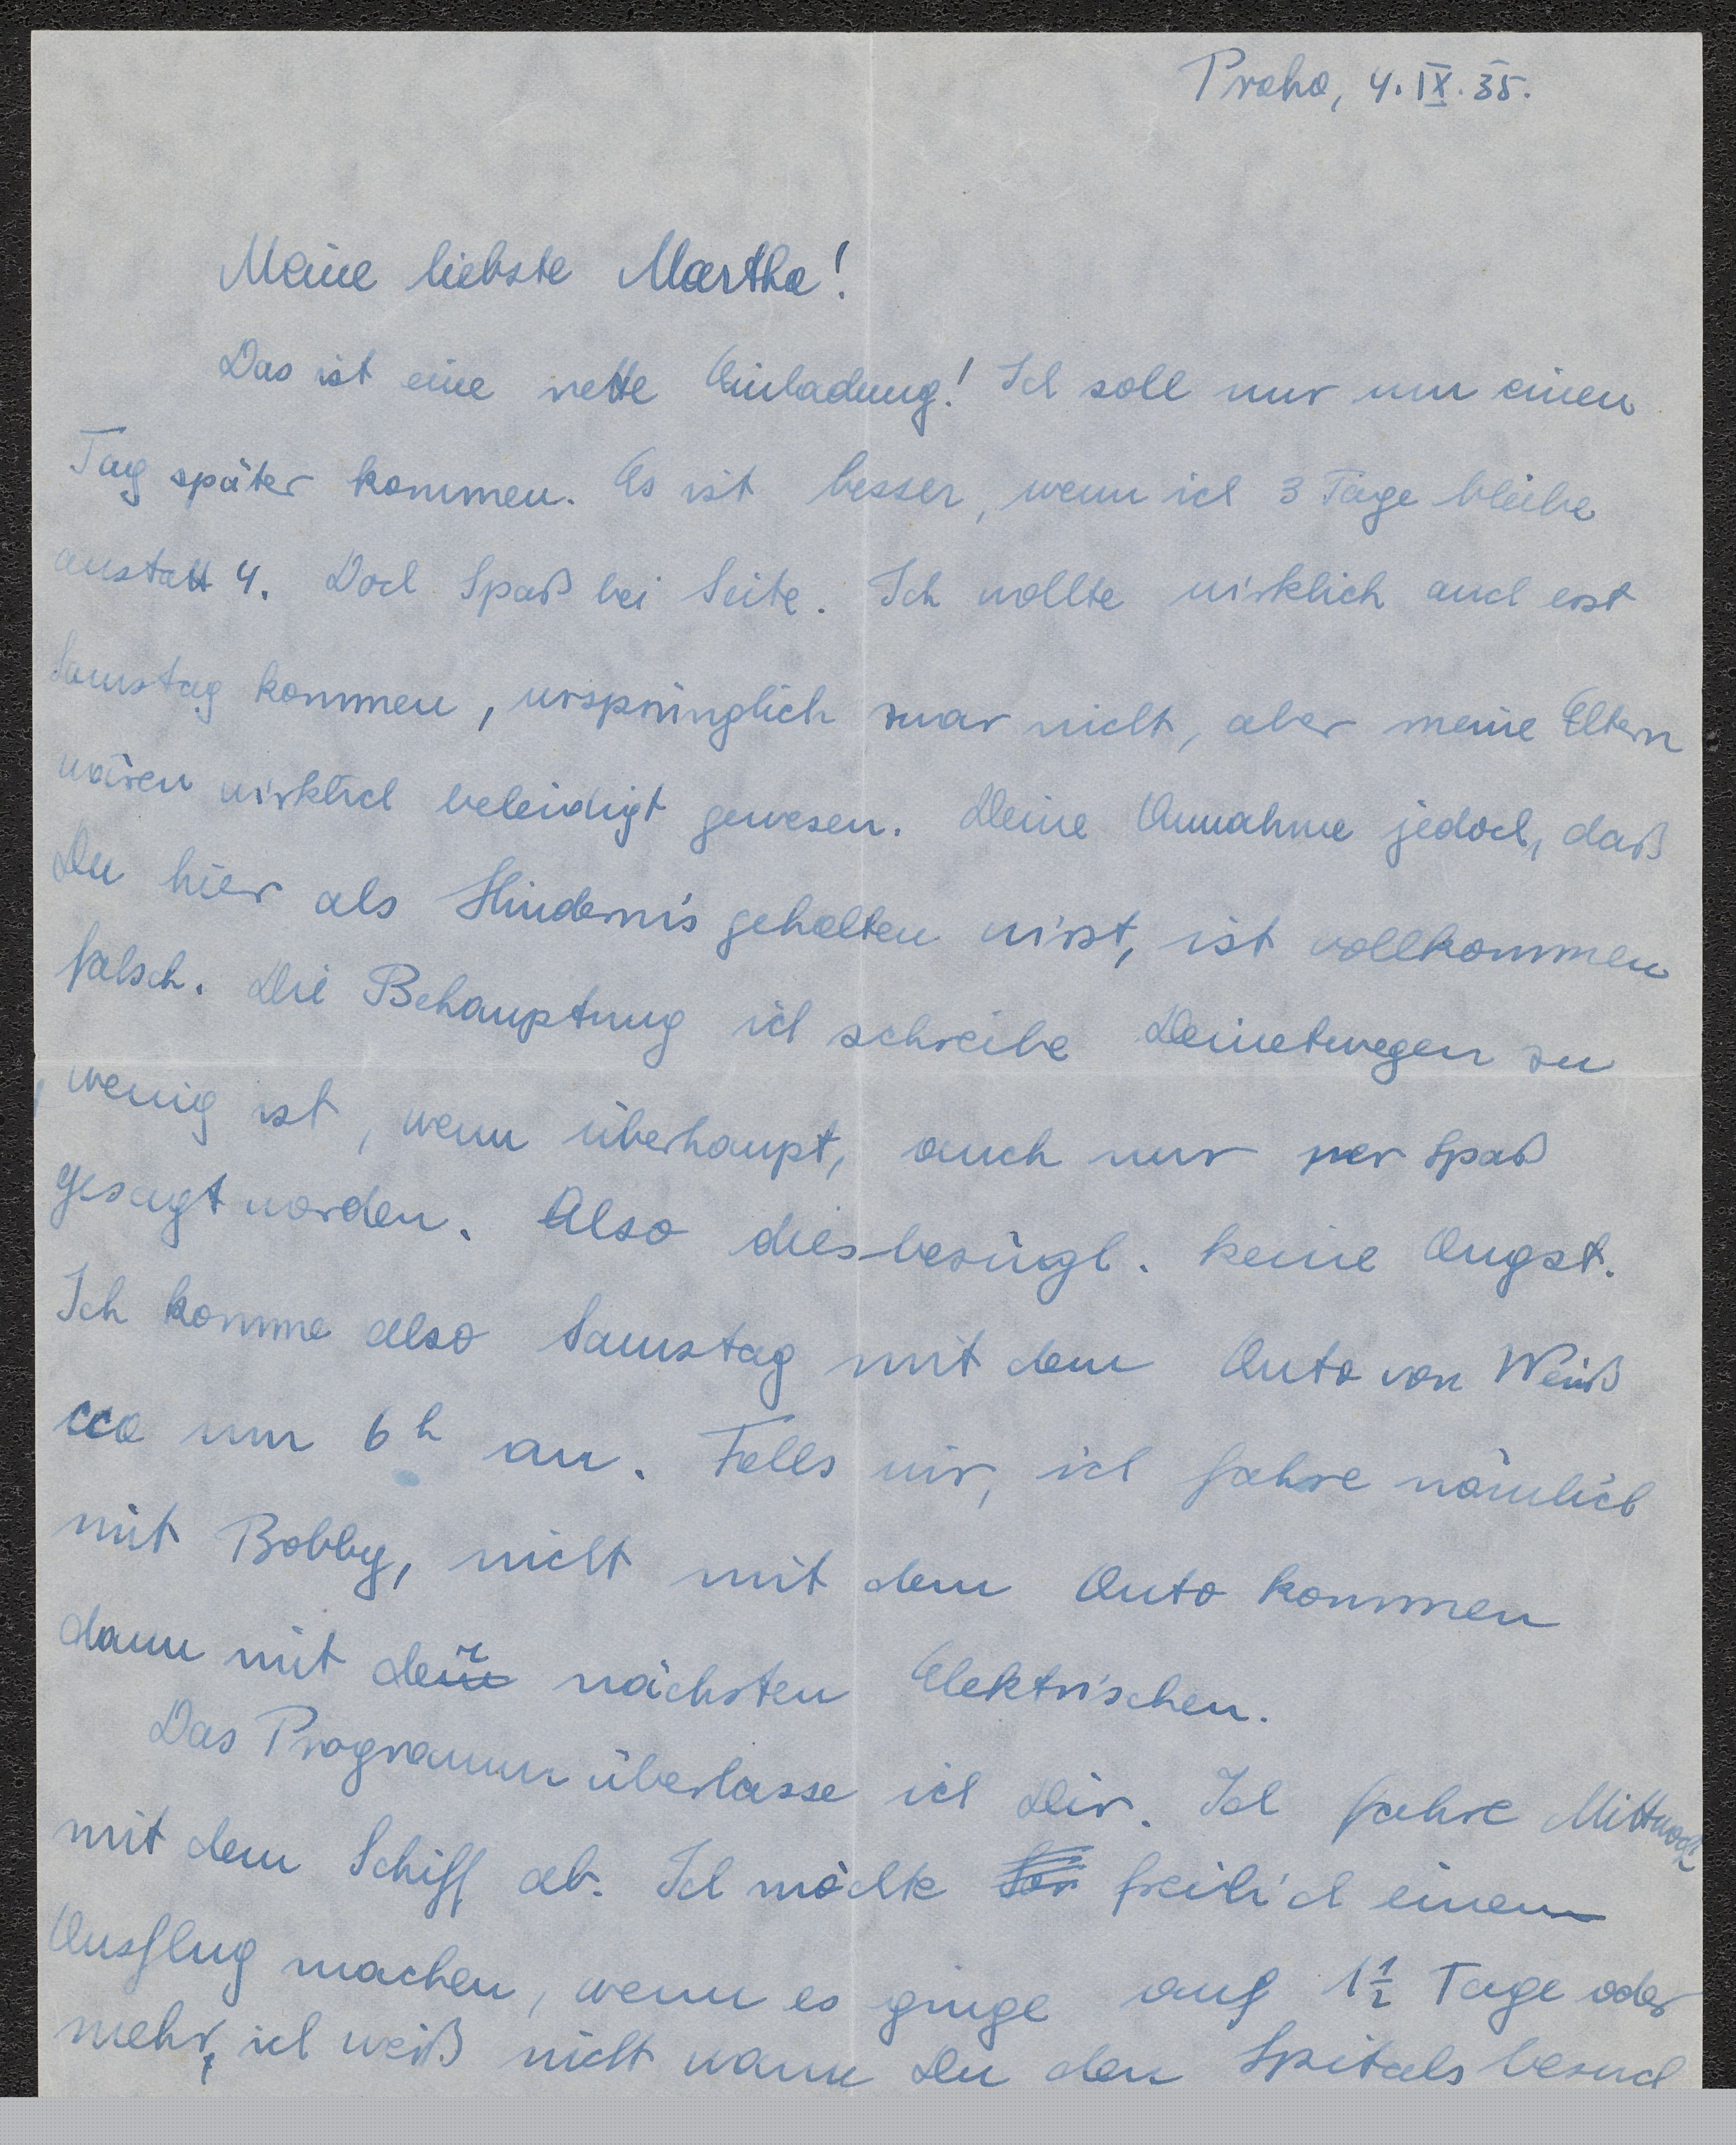 Praha, 4. IX. 35.
Meine liebste Martha!
Das ist eine nette Einladung! Ich soll nur um einen
Tag später kommen. Es ist besser, wenn ich 3 Tage bleibe
anstatt 4. Doch Spaß bei Seite. Ich wollte wirklich auch erst
Samstag kommen, ursprünglich zwar nicht, aber meine Eltern
wären wirklich beleidigt gewesen. Deine Annahme jedoch, daß
Du hier als Hindernis gehalten wirst, ist vollkommen
falsch. Die Behauptung ich schreibe Deinetwegen zu
wenig ist, wenn überhaupt, auch nur per Spaß
gesagt worden. Also diesbezügl. keine Angst.
Ich komme also Samstag mit dem Auto von Weiß
cca um 6h an. Falls wir, ich fahre nämlich
mit Bobby, nicht mit dem Auto kommen
dann mit der nächsten Elektrischen.
Das Programm überlasse ich Dir. Ich fahre Mittwoch
mit dem Schiff ab. Ich möchte freilich einen
Ausflug machen, wenn es ginge auf 1 1/2 Tage oder
mehr, ich weiß nicht wann Du den Spitalsbesuch